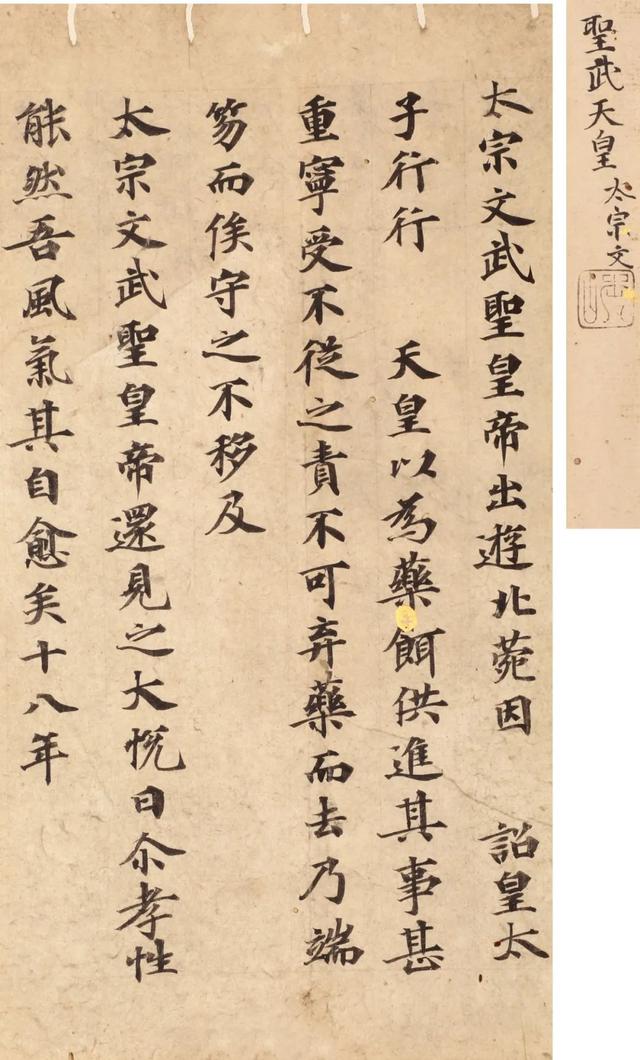 聖武天皇 太宗文
太宗文武聖皇帝出遊北菀因 詔皇太
子行行 天皇以為藥餌供進其事甚
重寧受不從之責不可弃藥而去乃端
笏而俟守之不移及
太宗文武聖皇帝還見之大悅曰尒孝性
能然吾風氣其自愈矣十八年